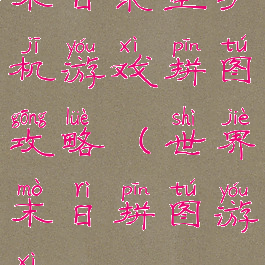 jī yóu xì pīn tú
机游戏拼图
gōng lüè shì jiè
攻略（世界
mò rì pīn tú yóu
末日拼图游
xì